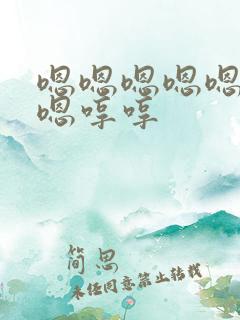 嗯嗯嗯嗯嗯
嗯哼哼
简思
未经同意禁止转载